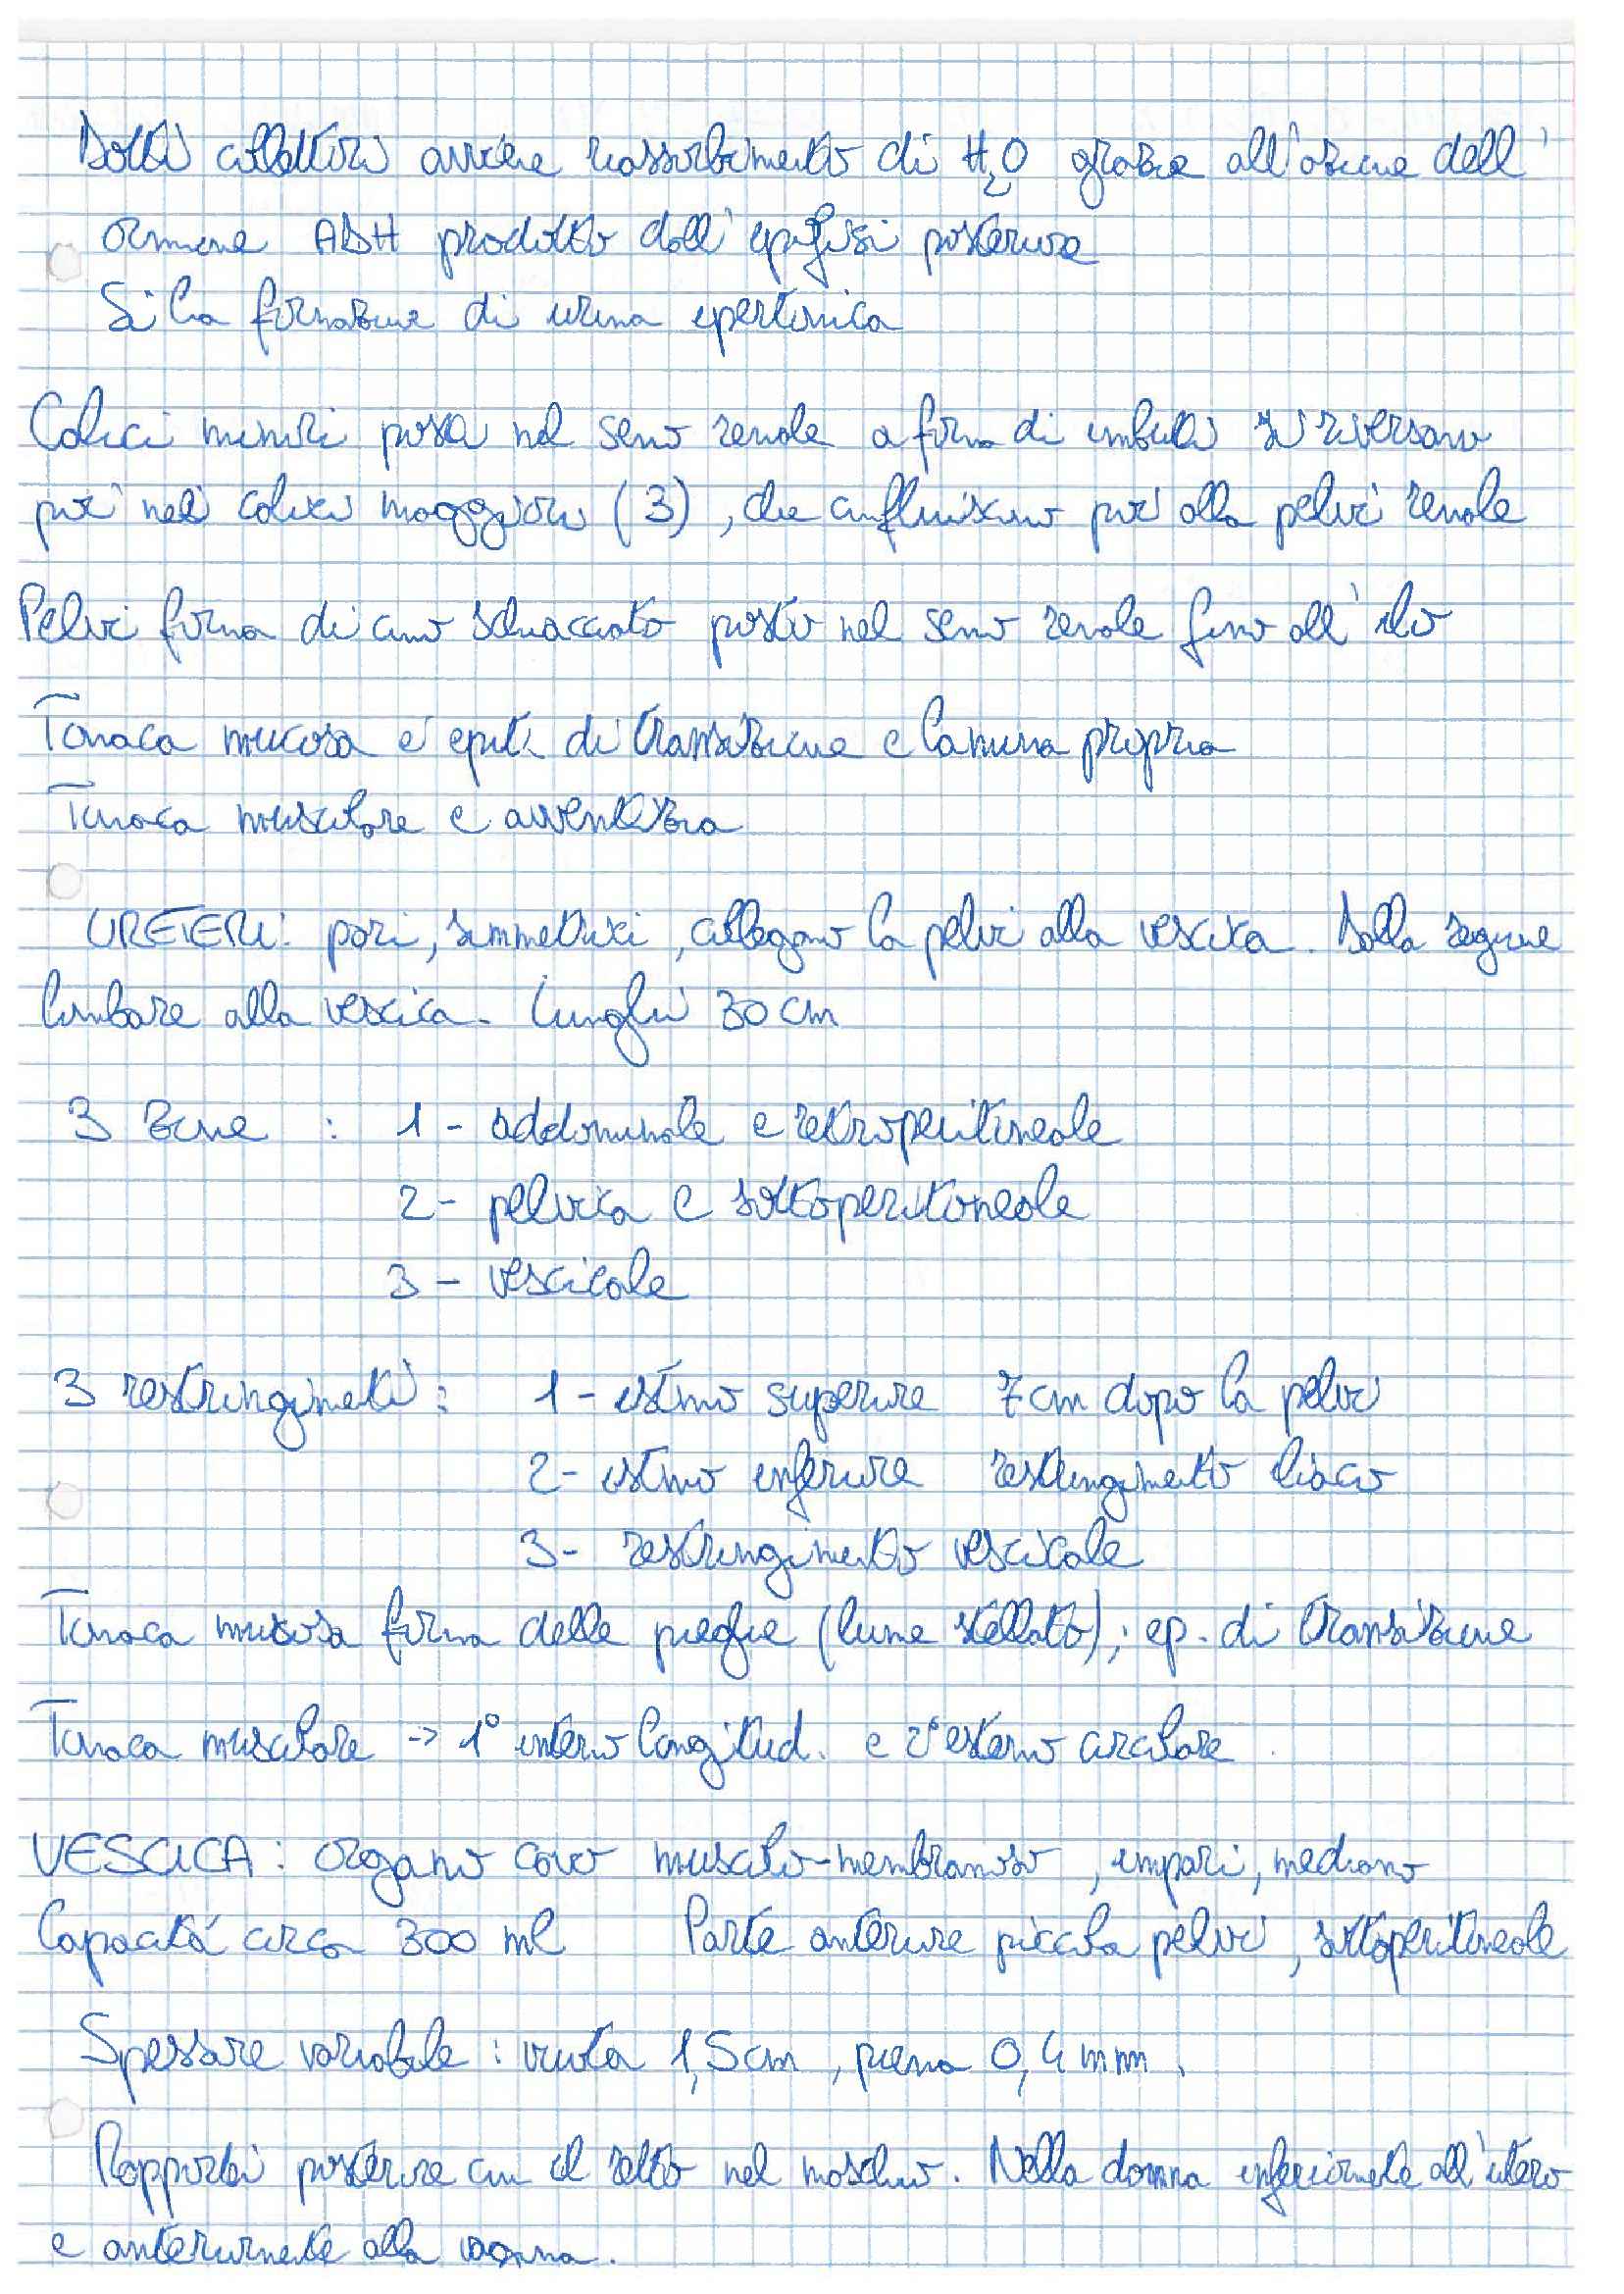 Dotti collettori avviene riassorbimento di H₂O grazie all'azione dell'
ormone ADH prodotto dall'epifisi posteriore
Si ha formazione di urina ipertonica
Calici minori posti nel seno renale a forma di imbuti si riversano
poi nei calici maggiori (3), che confluiscono poi alla pelvi renale
Pelvi forma di cono schiacciato posto nel seno renale fino all'ilo
Tonaca mucosa è epit. di transizione e lamina propria
Tonaca muscolare e avventizia
URETERI: pari, simmetrici, collegano la pelvi alla vescica. Dalla regione
lombare alla vescica. Lunghi 30 cm
3 zone : 1 - addominale e retroperitoneale
2 - pelvica e sottoperitoneale
3 - vescicale
3 restringimenti: 1 - istmo superiore 7 cm dopo la pelvi
2 - istmo inferiore restringimento iliaco
3 - restringimento vescicale
Tonaca mucosa forma delle pieghe (lume stellato); ep. di transizione
Tonaca muscolare -> 1° interno longitud. e 2° esterno circolare
VESCICA: organo cavo muscolo-membranoso, impari, mediano
Capacità circa 300 ml Parte anteriore piccola pelvi, sottoperitoneale
Spessore variabile: vuota 1,5 cm, piena 0,4 mm.
Rapporti posteriore con il retto nel maschio. Nella donna inferiormente all'utero
e anteriormente alla vagina.